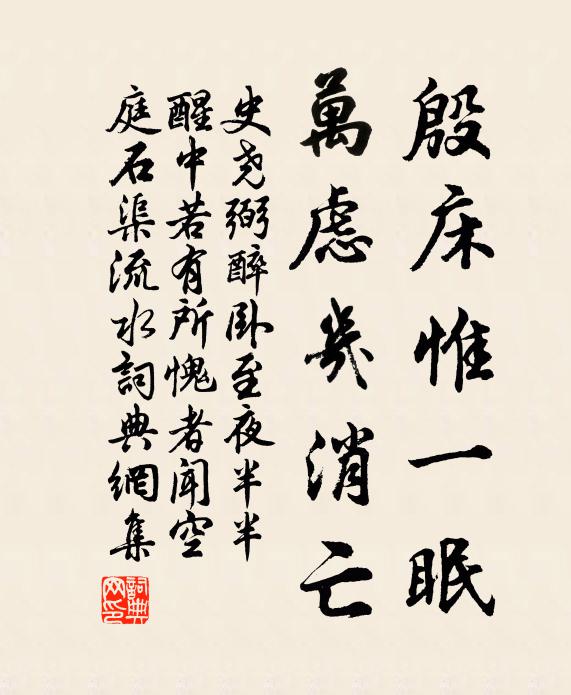 殷床惟一眠
萬慮幾消亡
史尧弼醉卧至夜半半
醒中若有所愧者闻空
庭石渠流水詞典網集
詞典網印